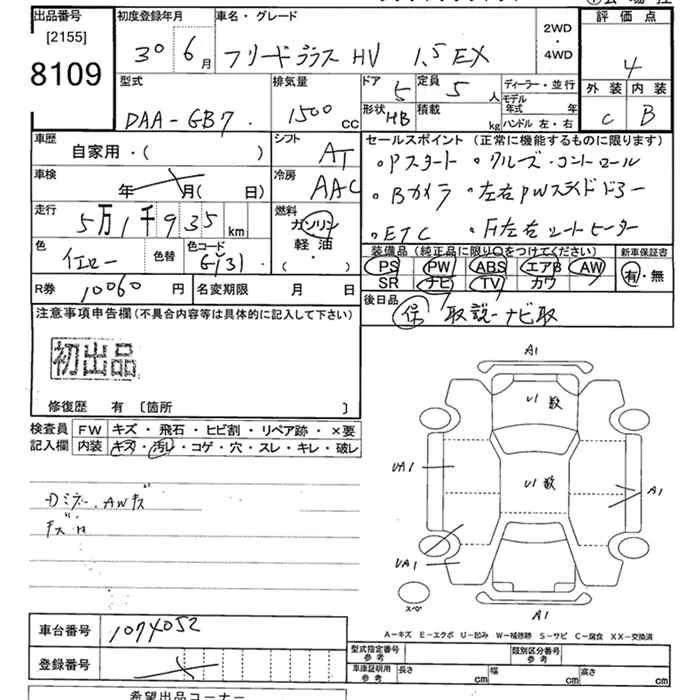 出品番号
[2155]
8109
初度登録年月
30年 6月
車名・グレード
フリードプラス HV 1.5 EX
2WD
・
4WD
評価点
4
外装 内装
C B
型式
DAA-GB7
排気量
1500 cc
ドア 5
定員 5人
形状 HB
積載 kg
ディーラー・並行
モデル年式 年
ハンドル 左・右
車歴
自家用・( )
シフト
AT
車検
年 月( 日)
冷房
AAC
走行
5万1千935 km
燃料
ガソリン
軽油
・( )
色
イエロー
色替
色コード
G(3)
R券 10060円
名変期限 月 日
セールスポイント (正常に機能するものに限ります)
・Pスタート ・クルーズ・コントロール
・Bカメラ ・左右PWスライドドアー
・ETC ・F左右シートヒーター
装備品 (純正品に限り○をつけてください)
PS PW ABS エアB AW
SR ナビ TV カワ
新車保証書
有・無
後日品
保 取説-ナビ取
注意事項申告欄 (不具合内容等は具体的に記入して下さい)
初出品
修復歴 有 [箇所 ]
検査員記入欄
FW キズ・飛石・ヒビ割・リペア跡・×要
内装 キズ・汚レ・コゲ・穴・スレ・キレ・破レ
AWキズ
A1
U1 数
U1 数
UA1
A1
UA1
スペア
A1
A-キズ E-エクボ U-凹み W-補修跡 S-サビ C-腐食 XX-交換済
車台番号 1074052
登録番号
型式指定番号
参考
類別区分番号
参考
車庫証明用
参考
長さ cm
幅 cm
高さ cm
希望出品コーナー